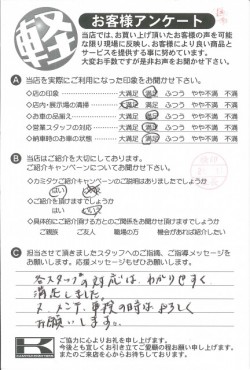 軽
お客様アンケート
当店では、お買い上げ頂いたお客様の声を可能
な限り現場に反映し、お客様により良い商品と
サービスを提供する事に努めています。
大変お手数ですが是非お声をお聞かせ下さい。
A 当店を実際にご利用になった印象をお聞かせ下さい。
◇店の印象 大満足 満足 ふつう やや不満 不満
◇店内・展示場の清掃 大満足 満足 ふつう やや不満 不満
◇お車の品揃え 大満足 満足 ふつう やや不満 不満
◇営業スタッフの対応 大満足 満足 ふつう やや不満 不満
◇納車時のお車の状態 大満足 満足 ふつう やや不満 不満
B 当店はご紹介を大切にしております。
ご紹介キャンペーンについてお聞かせ下さい。
◇カミタケご紹介キャンペーンのご説明はありましたでしょうか
はい
◇ご紹介を頂けますでしょうか
はい いいえ
◇具体的にご紹介頂ける方とのご関係をお聞かせ頂けますでしょうか
ご親族 ご友人 職場の方 機会があれば紹介したい
C 担当させて頂きましたスタッフへのご指摘、ご指導メッセージを
お願いします。応援メッセージもぜひお願いします。
各スタッフの対応は、わかりやすく
満足しました
メンテ、車検の時はよろしく
お願いします。
K
ご協力に心よりお礼を申し上げます。
今後とも宜しくお引き立てご愛顧の程お願い申し上げます。
またのご来店を心からお待ちしております。